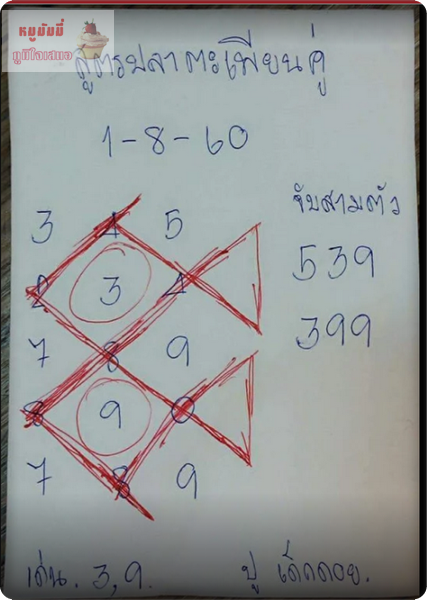 หมูมัมมี่
มูมีใจเสมอ
สูตรปลาตะเพียนคู่
1-8-60
3 4 5
2 3 4
7 8 9
8 9 0
7 8 9
จับสามตัว
539
399
เด่น. 3,9.
ปู เด็กดอย.